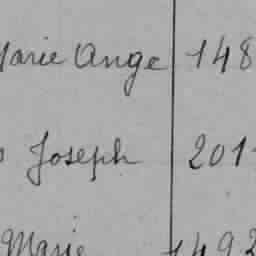 Marie Ange 148
Joseph 201
Marie 1492